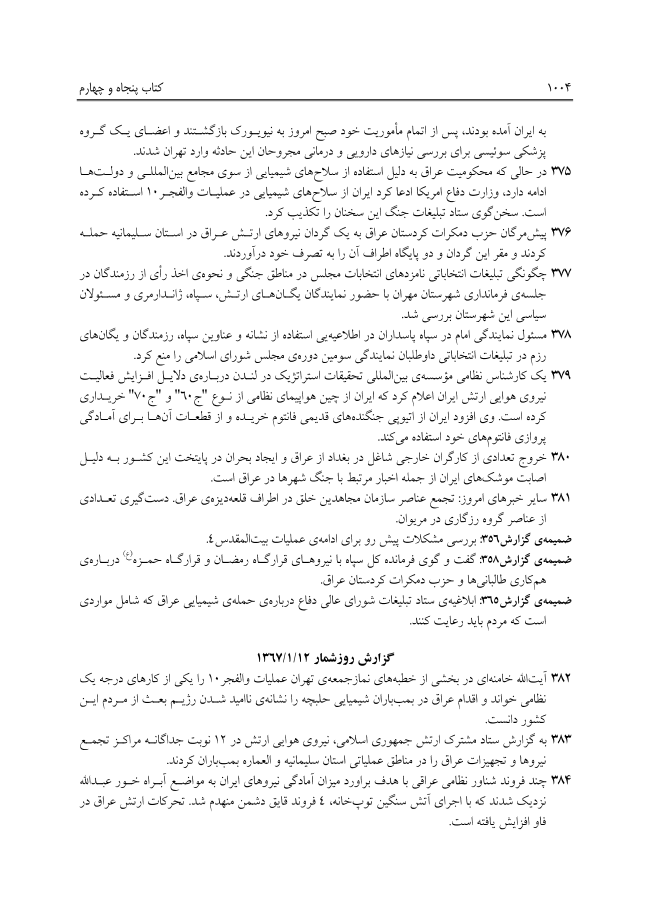 ۱۰۰۴ کتاب پنجاه و چهارم
به ایران آمده بودند، پس از اتمام مأموریت خود صبح امروز به نیویورک بازگشتند و اعضای یک گروه
پزشکی سوئیسی برای بررسی نیازهای دارویی و درمانی مجروحان این حادثه وارد تهران شدند.
۳۷۵ در حالی که محکومیت عراق به دلیل استفاده از سلاح‌های شیمیایی از سوی مجامع بین‌المللی و دولت‌ها
ادامه دارد، وزارت دفاع امریکا ادعا کرد ایران از سلاح‌های شیمیایی در عملیات والفجر ۱۰ استفاده کرده
است. سخن‌گوی ستاد تبلیغات جنگ این سخنان را تکذیب کرد.
۳۷۶ پیش‌مرگان حزب دمکرات کردستان عراق به یک گردان نیروهای ارتش عراق در استان سلیمانیه حمله
کردند و مقر این گردان و دو پایگاه اطراف آن را به تصرف خود درآوردند.
۳۷۷ چگونگی تبلیغات انتخاباتی نامزدهای انتخابات مجلس در مناطق جنگی و نحوه‌ی اخذ رأی از رزمندگان در
جلسه‌ی فرمانداری شهرستان مهران با حضور نمایندگان یگان‌های ارتش، سپاه، ژاندارمری و مسئولان
سیاسی این شهرستان بررسی شد.
۳۷۸ مسئول نمایندگی امام در سپاه پاسداران در اطلاعیه‌یی استفاده از نشانه و عناوین سپاه، رزمندگان و یگان‌های
رزم در تبلیغات انتخاباتی داوطلبان نمایندگی سومین دوره‌ی مجلس شورای اسلامی را منع کرد.
۳۷۹ یک کارشناس نظامی مؤسسه‌ی بین‌المللی تحقیقات استراتژیک در لندن درباره‌ی دلایل افزایش فعالیت
نیروی هوایی ارتش ایران اعلام کرد که ایران از چین هواپیمای نظامی از نوع "ج۶۰" و "ج۷۰" خریداری
کرده است. وی افزود ایران از اتیوپی جنگنده‌های قدیمی فانتوم خریده و از قطعات آن‌ها برای آمادگی
پروازی فانتوم‌های خود استفاده می‌کند.
۳۸۰ خروج تعدادی از کارگران خارجی شاغل در بغداد از عراق و ایجاد بحران در پایتخت این کشور به دلیل
اصابت موشک‌های ایران از جمله اخبار مرتبط با جنگ شهرها در عراق است.
۳۸۱ سایر خبرهای امروز: تجمع عناصر سازمان مجاهدین خلق در اطراف قلعه‌دیزه‌ی عراق. دست‌گیری تعدادی
از عناصر گروه رزگاری در مریوان.
ضمیمه‌ی گزارش۳۵۶: بررسی مشکلات پیش رو برای ادامه‌ی عملیات بیت‌المقدس۴.
ضمیمه‌ی گزارش۳۵۸: گفت و گوی فرمانده کل سپاه با نیروهای قرارگاه رمضان و قرارگاه حمزه(ع) درباره‌ی
هم‌کاری طالبانی‌ها و حزب دمکرات کردستان عراق.
ضمیمه‌ی گزارش۳۶۵: ابلاغیه‌ی ستاد تبلیغات شورای عالی دفاع درباره‌ی حمله‌ی شیمیایی عراق که شامل مواردی
است که مردم باید رعایت کنند.
گزارش روزشمار ۱۳۶۷/۱/۱۲
۳۸۲ آیت‌الله خامنه‌ای در بخشی از خطبه‌های نمازجمعه‌ی تهران عملیات والفجر۱۰ را یکی از کارهای درجه یک
نظامی خواند و اقدام عراق در بمب‌باران شیمیایی حلبچه را نشانه‌ی ناامید شدن رژیم بعث از مردم این
کشور دانست.
۳۸۳ به گزارش ستاد مشترک ارتش جمهوری اسلامی، نیروی هوایی ارتش در ۱۲ نوبت جداگانه مراکز تجمع
نیروها و تجهیزات عراق را در مناطق عملیاتی استان سلیمانیه و العماره بمب‌باران کردند.
۳۸۴ چند فروند شناور نظامی عراقی با هدف براورد میزان آمادگی نیروهای ایران به مواضع آبراه خور عبدالله
نزدیک شدند که با اجرای آتش سنگین توپ‌خانه، ۴ فروند قایق دشمن منهدم شد. تحرکات ارتش عراق در
فاو افزایش یافته است.